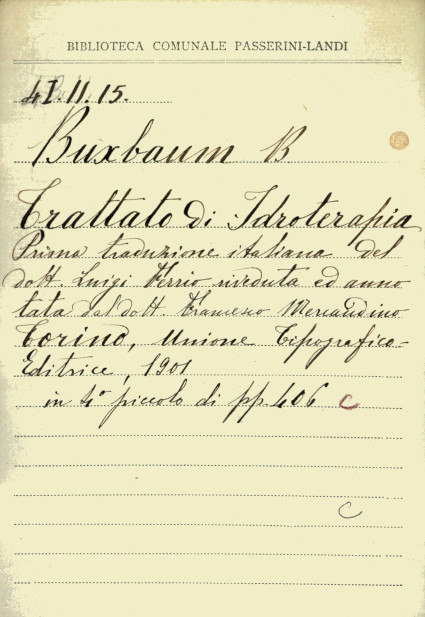 BIBLIOTECA COMUNALE PASSERINI-LANDI
4I.11.15.
Buxbaum B
Trattato di Idroterapia
Prima traduzione italiana del
dott. Luigi Ferrio riveduta ed anno
tata dal dott. Francesco Mercandino
Torino, Unione Tipografico-
Editrice, 1901
in 4° piccolo di pp. 406 C
C